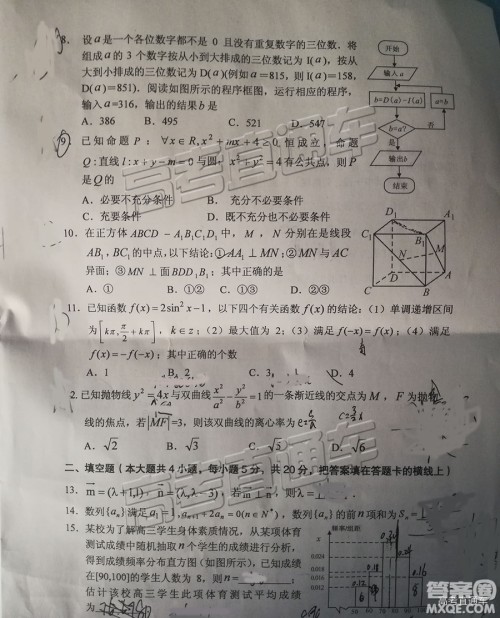 8. 设a是一个各位数字都不是 0 且没有重复数字的三位数．将
组成a的 3 个数字按从小到大排成的三位数记为 I(a)，按从
大到小排成的三位数记为 D(a)(例如a=815，则 I(a)=158，
D(a)=851)．阅读如图所示的程序框图，运行相应的程序，
输入a=316，输出的结果b是
A．386 B．495 C．521 D．547
开始
输入a
b=D(a)-I(a)
a=b
b=a?
否
是
输出b
结束
9 已知命题 P：∀x∈R, x²+mx+4≥0 恒成立，命题
Q：直线l：x+y-m=0与圆 x²+y²=4有公共点，则P
是Q的
A．必要不充分条件 B．充分不必要条件
C．充要条件 D．既不充分也不必要条件
10．在正方体ABCD-A₁B₁C₁D₁中，M，N分别在是线段
AB₁，BC₁的中点，以下结论：①AA₁⊥MN；②MN与AC
异面；③MN⊥面BDD₁B₁；其中正确的是
A．① B．①② C．①③ D．②③
D₁ A₁
C₁ B₁
M
N
D A
C B
11．已知函数f(x)=2sin²x-1，以下四个有关函数f(x)的结论：（1）单调递增区间
为[kπ, π/2+kπ]，k∈z；（2）最大值为 2；（3）满足f(-x)=f(x)；（4）满足
f(x)=-f(-x)；其中正确的个数
A．1 B．2 C．3 D．4
2.已知抛物线y²=4x与双曲线x²/a²-y²/b²=1的一条渐近线的交点为M，F为抛物
线的焦点，若|MF|=3，则该双曲线的离心率为
A．√2 B．√3 C．√5 D．√6
二、填空题（本大题共4小题，每小题5分，共20分，把答案填在答题卡的横线上）
13．m=(λ+1,1)，n=(λ,λ-3)，若m⊥n，则λ=
14．数列{aₙ}满足a₁=1，aₙ₊₁+2aₙ=0(n∈N*)，数列{aₙ}的前n项和为Sₙ=
15．某校为了解高三学生身体素质情况，从某项体育
测试成绩中随机抽取n个学生的成绩进行分析，
得到成绩频率分布直方图（如图所示），已知成绩
在[90,100]的学生人数为 8，则n=
估计该校高三学生此项体育测试平均成绩
为
频率/组距
0.024
0.016
0.012
高考直通车
高考直通车
答案圈